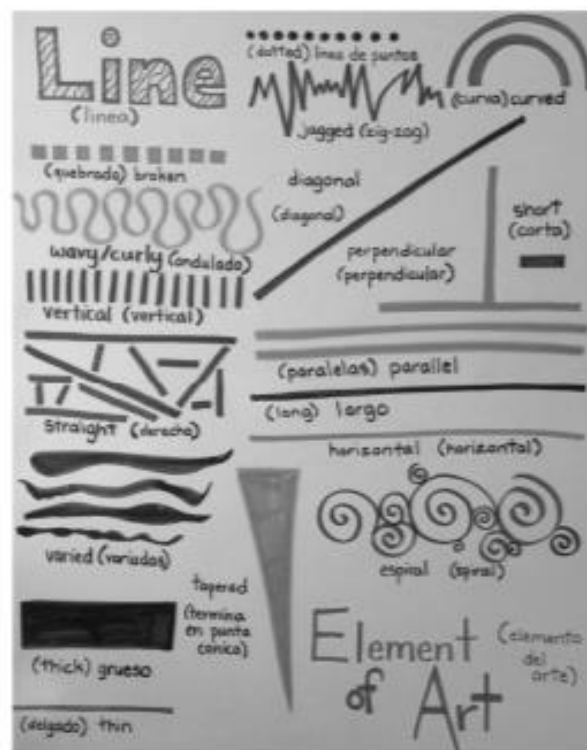 Line
(linea)
(dotted) linea de puntos
jagged (zig-zag)
(curva) curved
(quebrada) broken
diagonal
(diagonal)
wavy/curly (ondulada)
perpendicular
(perpendicular)
short
(corta)
vertical (vertical)
(paralelas) parallel
(long) largo
straight (derecha)
horizontal (horizontal)
varied (variadas)
espiral (spiral)
tapered
(termina
en punta
conica)
(thick) grueso
(delgado) thin
Element
of Art
(elemento
del
arte)